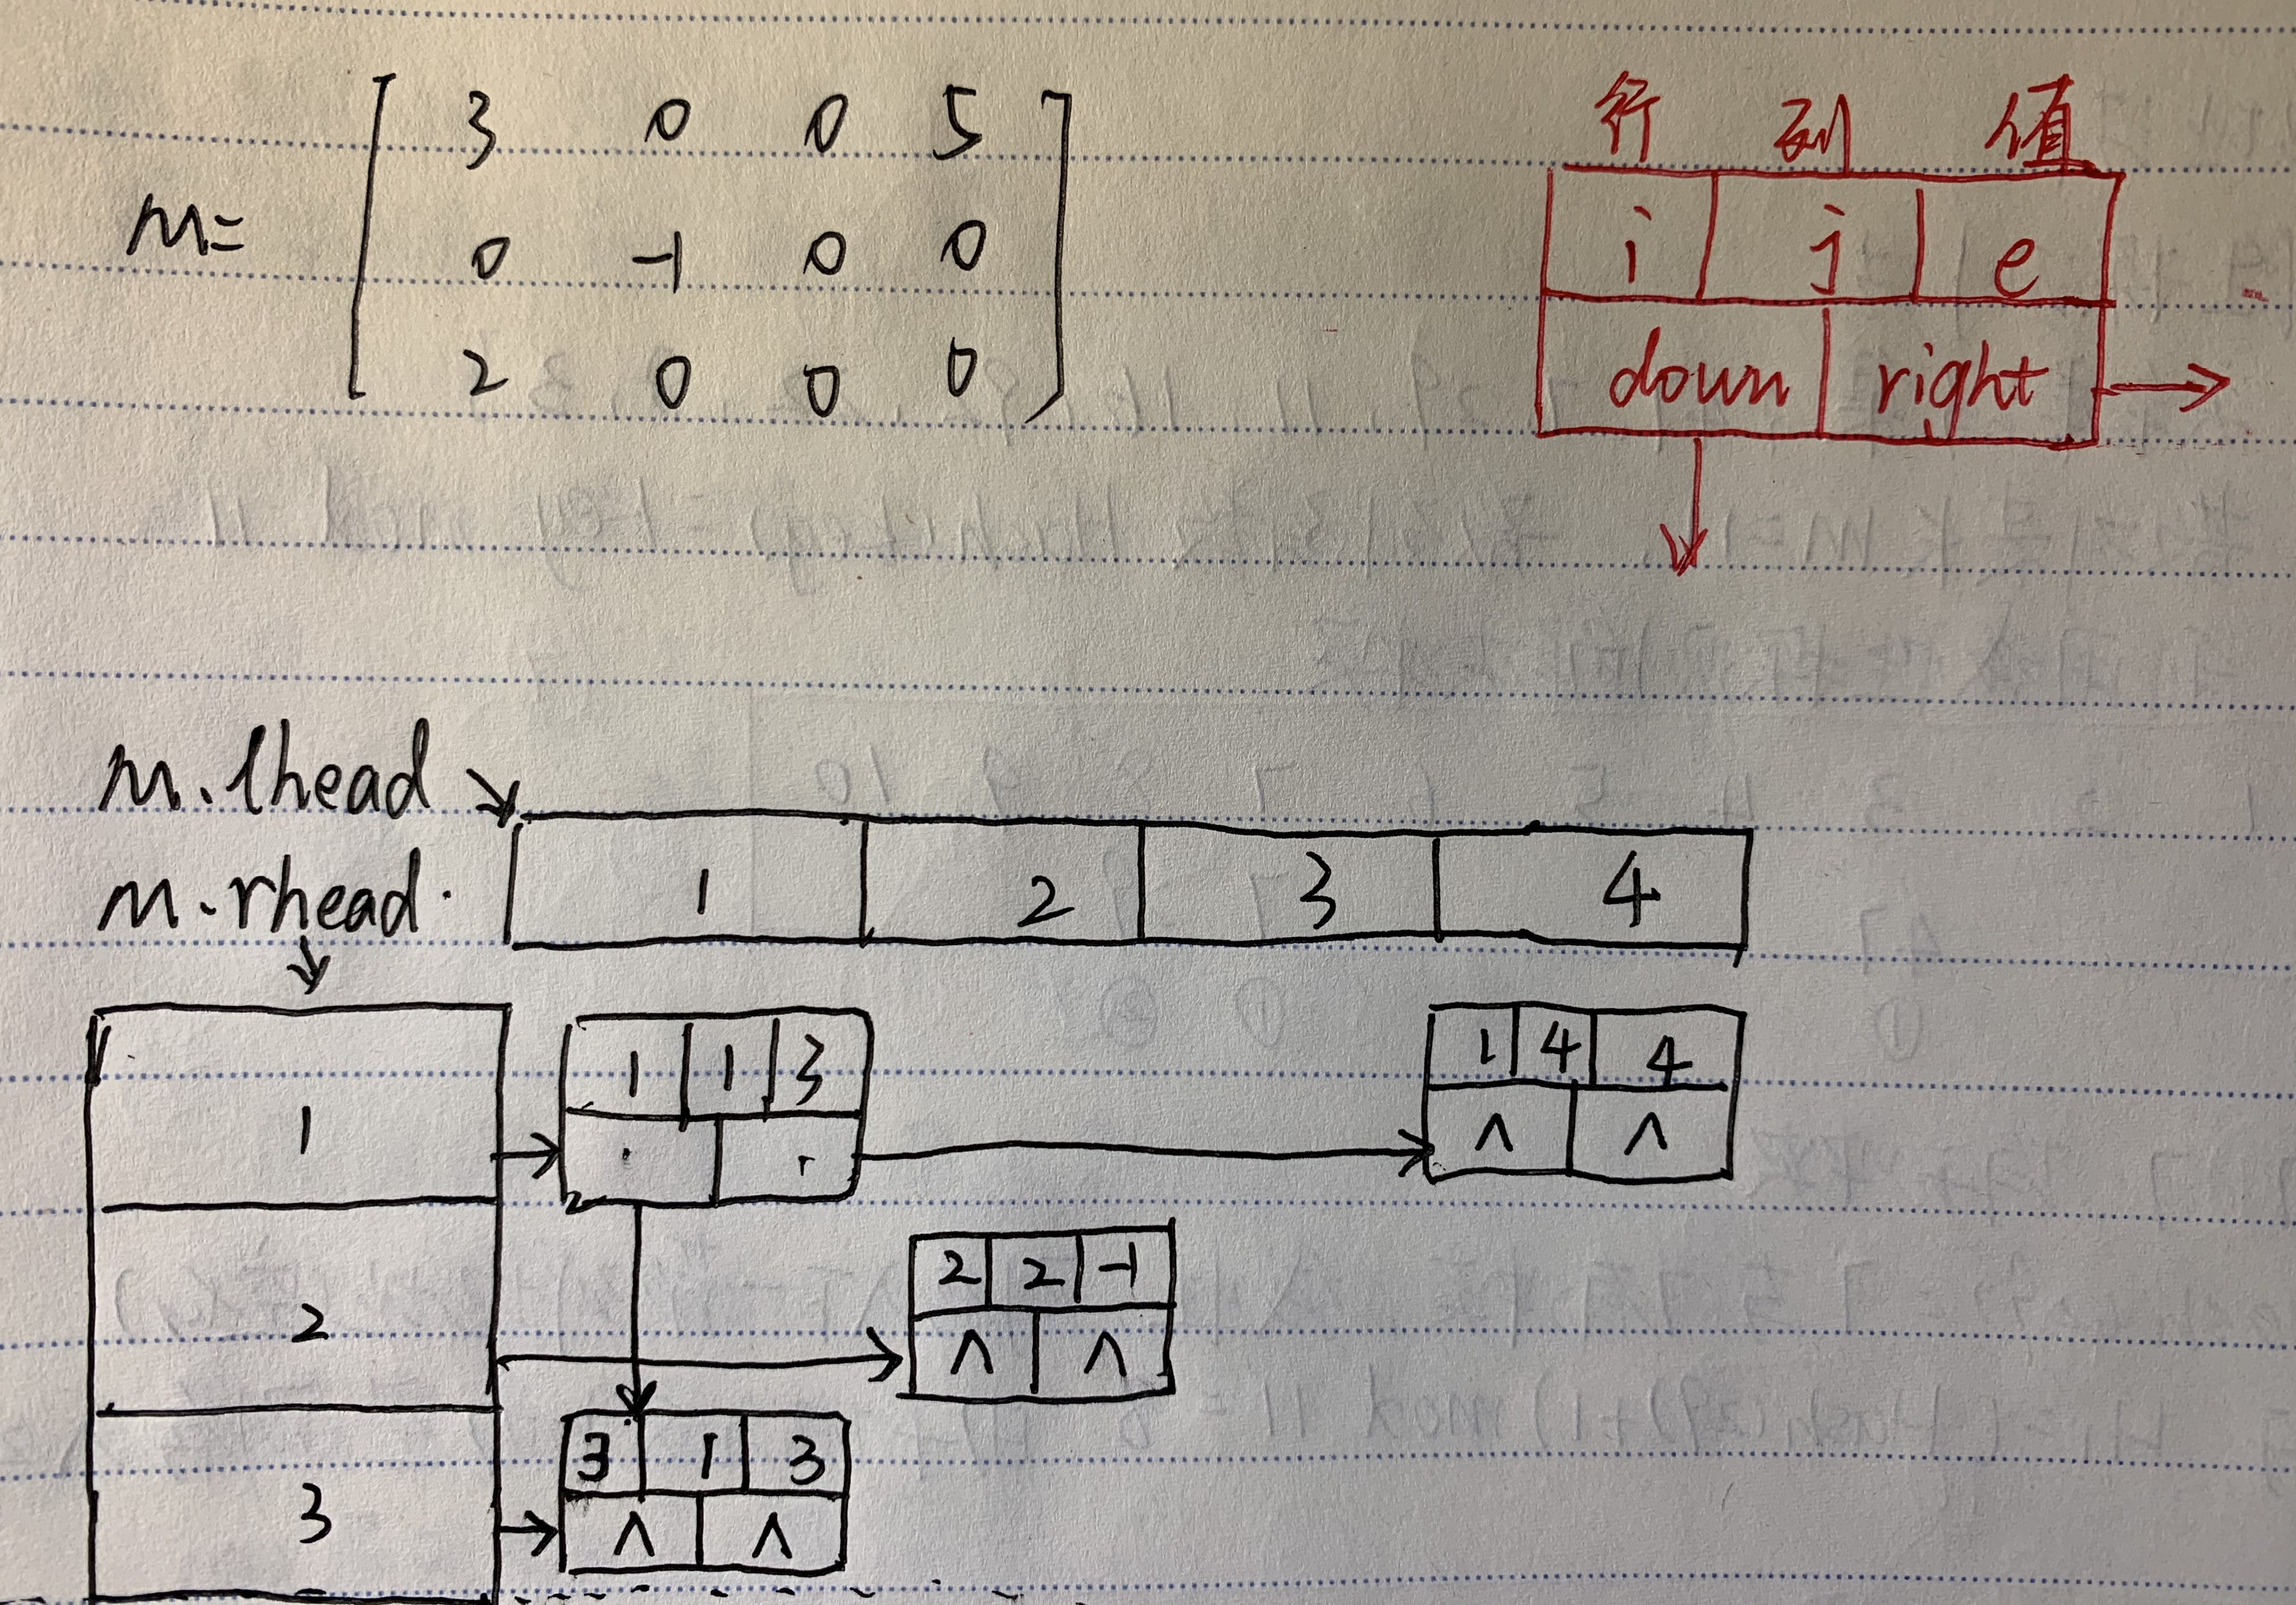 m=
3 0 0 5
0 -1 0 0
2 0 0 0
行 列 值
i j e
down right
m.lhead
1 2 3 4
m.rhead.
1
1 1 3
1 4 4
∧ ∧
2
2 2 -1
∧ ∧
3
3 1 3
∧ ∧